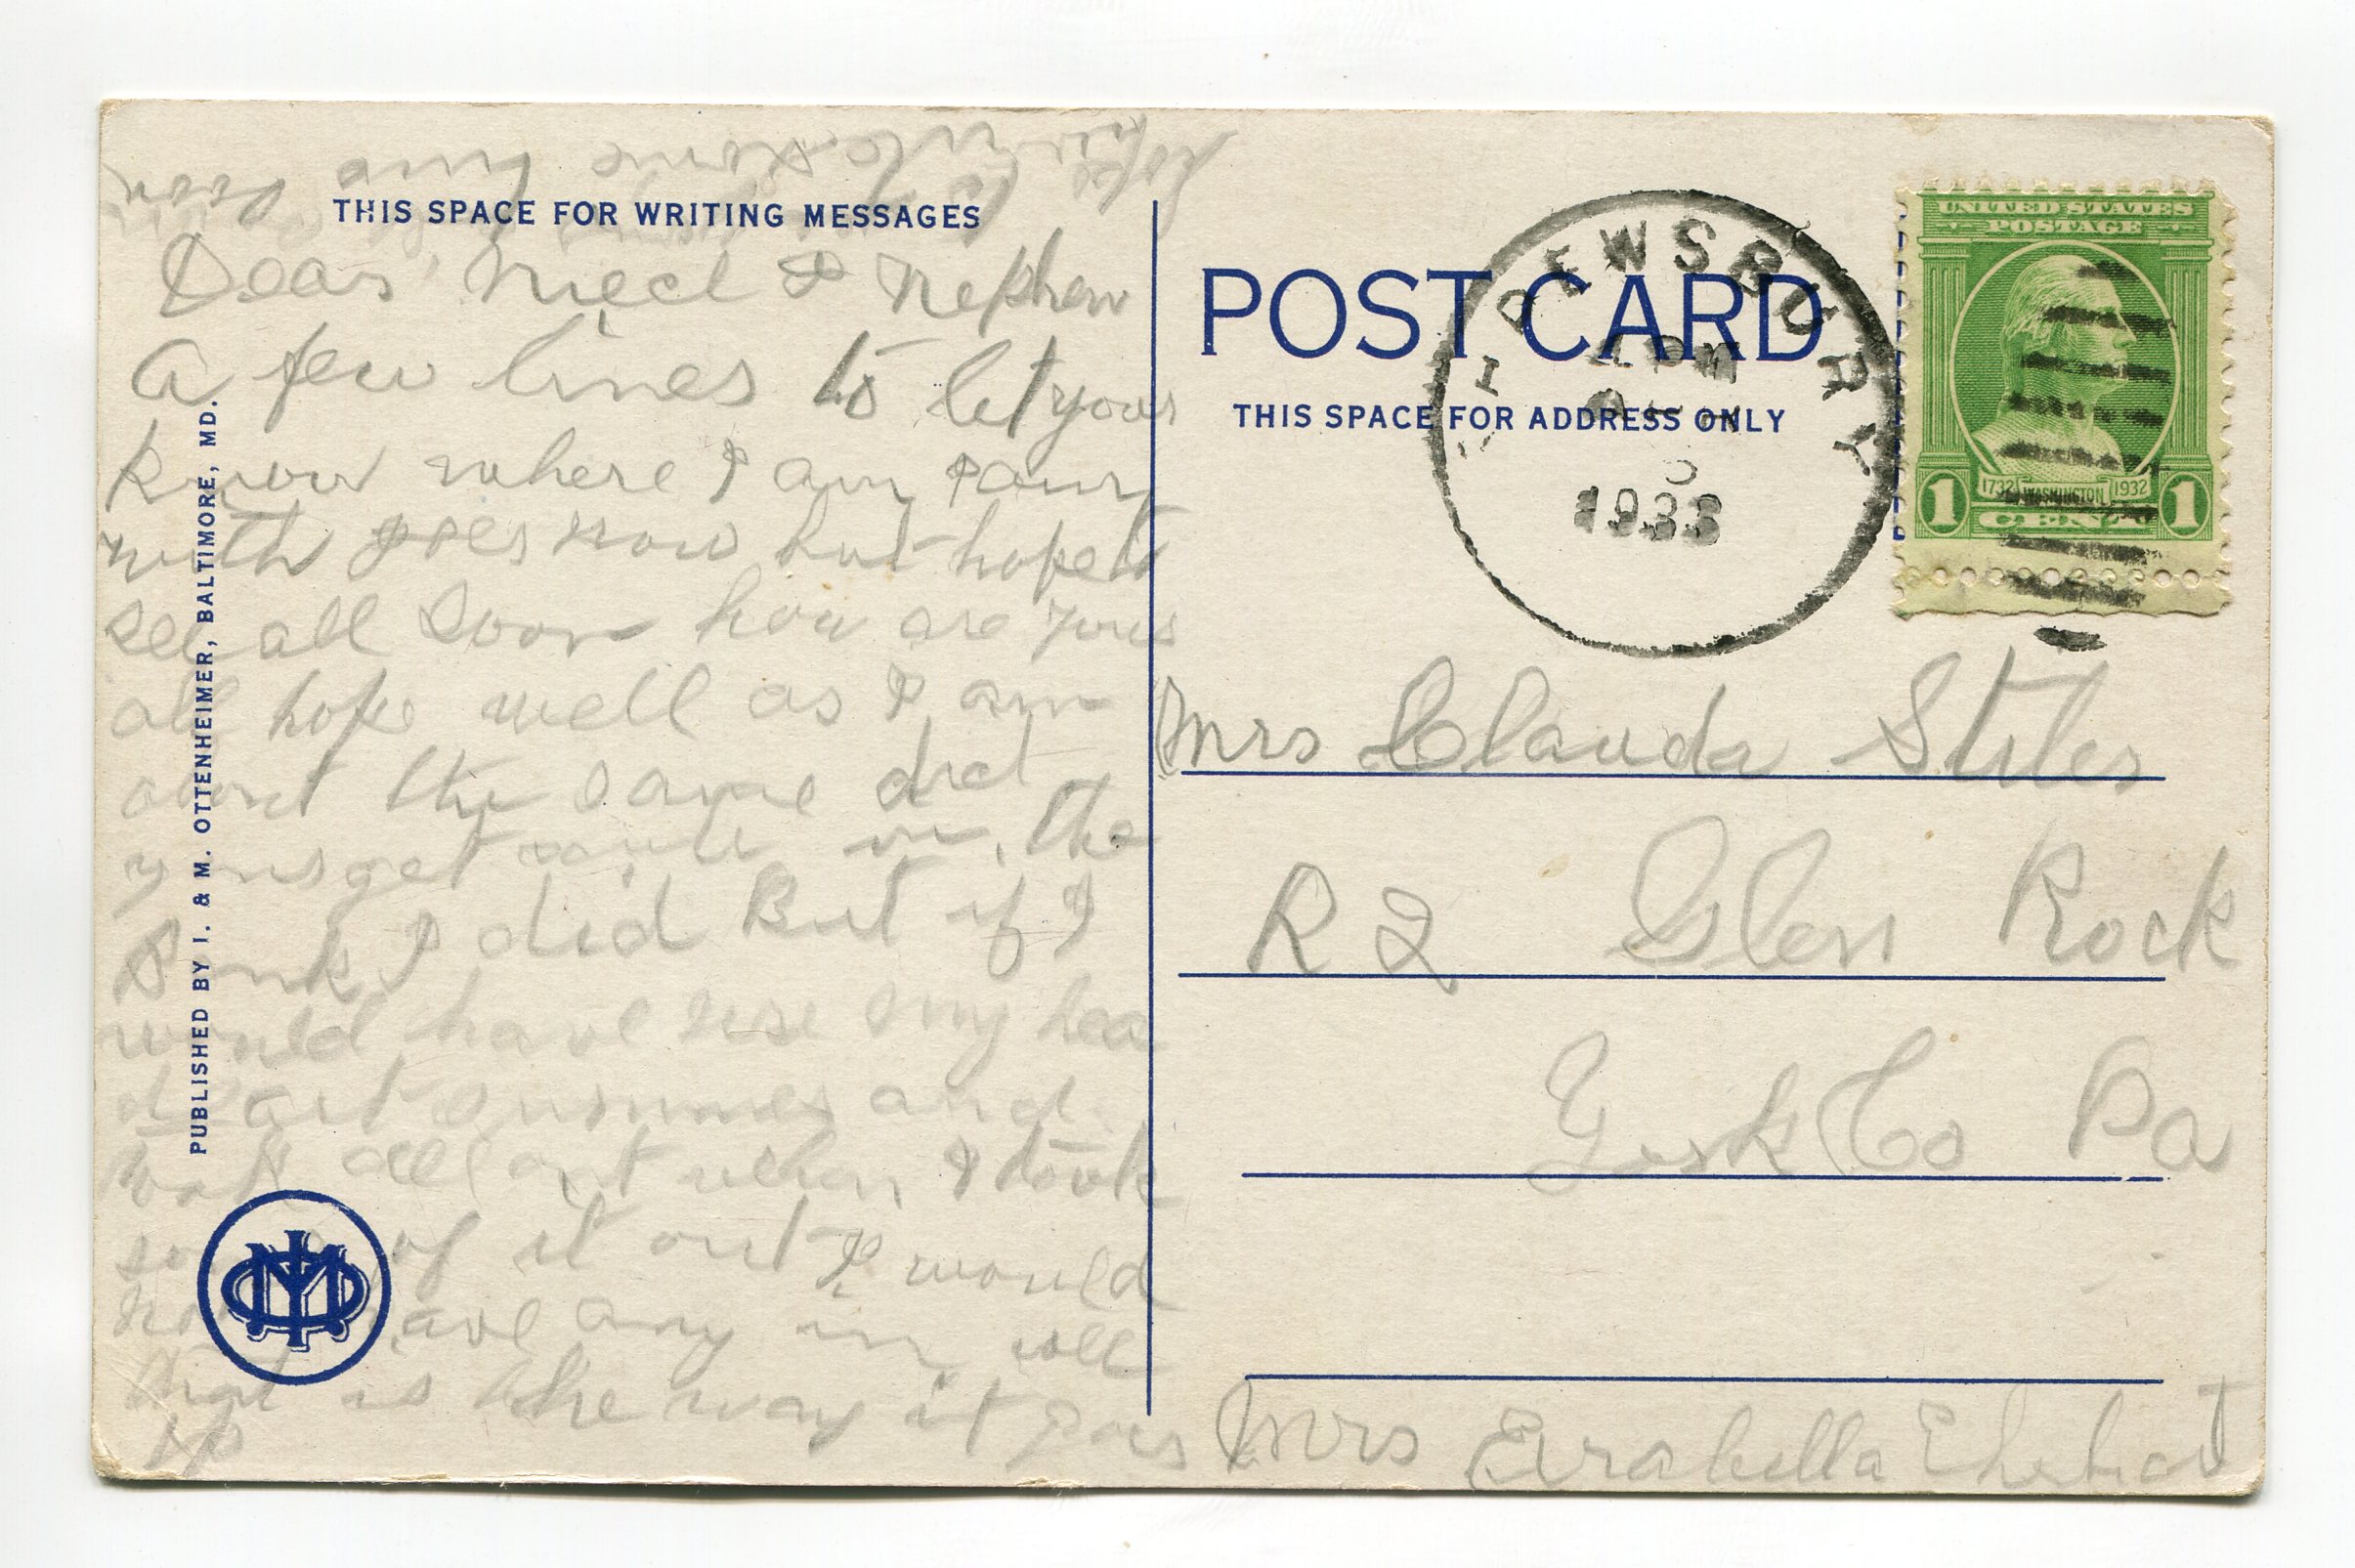 soon
some time
THIS SPACE FOR WRITING MESSAGES
Dear Niece & Nephew
a few lines to let yous
know where I am I am
with now but hope to
see all Soon how are yous
all hope well as I am
about the same did
yous get in the
Bank I did But if I
would have use my hea
d Last Summer and
all out when I took
of it out I would
have any in well
that is the way it goes
PUBLISHED BY I. & M. OTTENHEIMER, BALTIMORE, MD.
POST CARD
THIS SPACE FOR ADDRESS ONLY
DEWSBURY
1933
UNITED STATES
POSTAGE
1732 WASHINGTON 1932
1 CENT 1
Mrs Clauda Stiles
R 2 Glen Rock
York Co Pa
Mrs Erabella Ehrhart